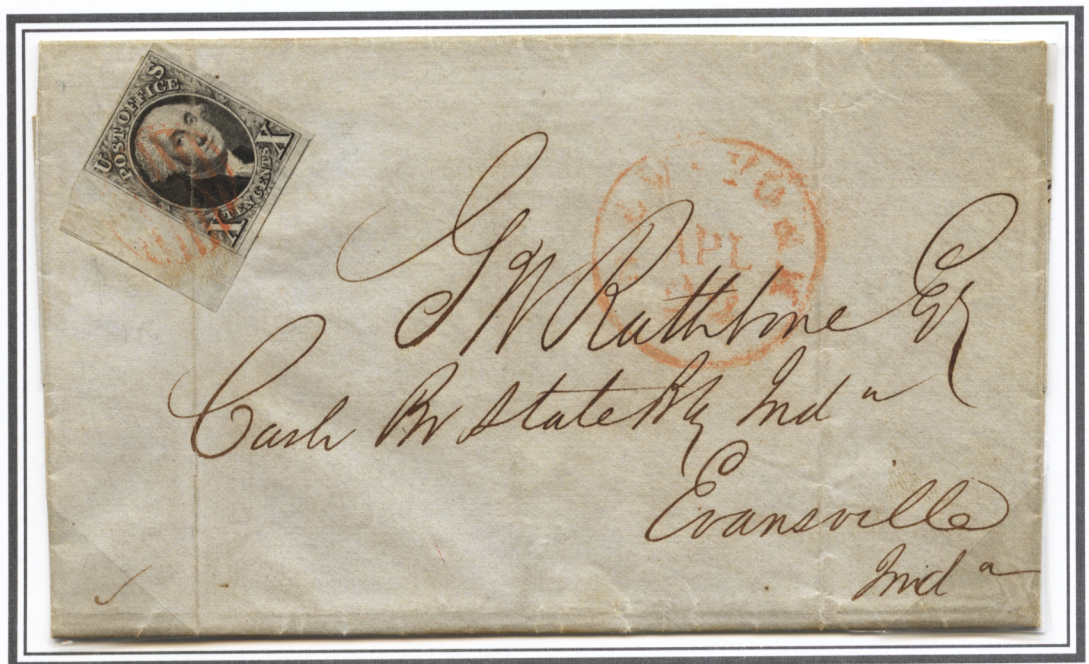 U S
POST OFFICE
X TEN CENTS X
NEW-YORK
APL
G W Rathbone Esq
Cash Br State Bk Ind a
Evansville
Ind a